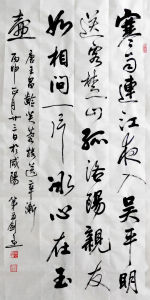 寒雨連江夜入吴平明
送客楚山孤洛陽親友
如相問一片冰心在玉
壺
唐王昌齡芙蓉樓送辛漸
丙申正月廿三日於咸陽